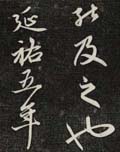 能及之也
延祐五年